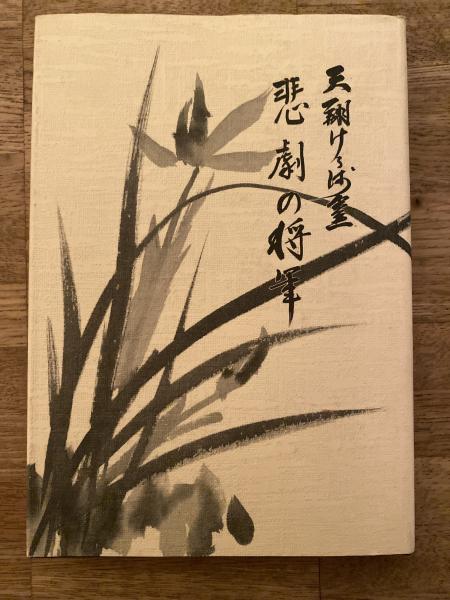 天翔ける御霊
悲劇の将軍